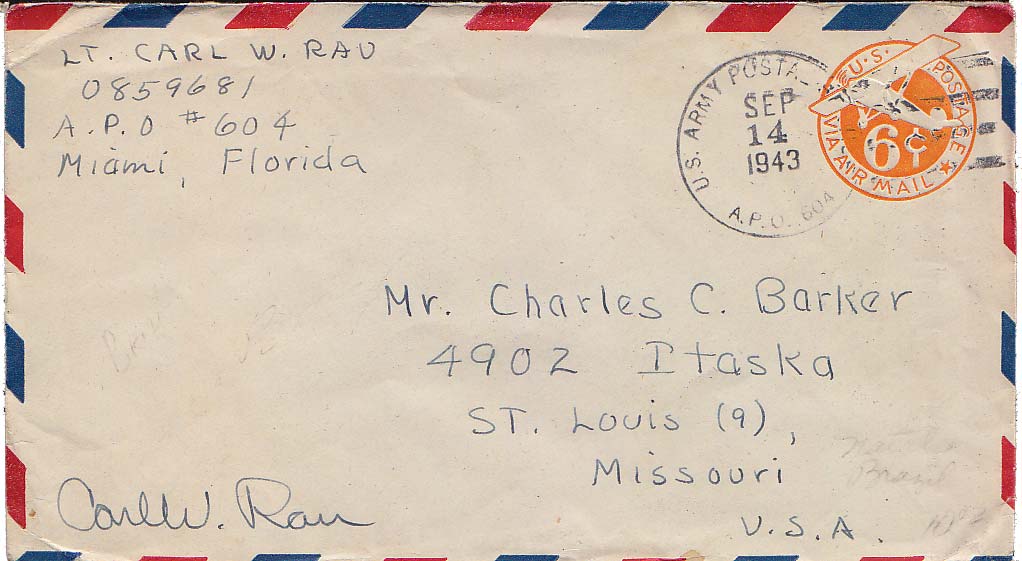 LT. CARL W. RAU
0859681
A.P.O #604
Miami, Florida
U.S. ARMY POSTAL
SEP
14
1943
A.P.O. 604
U.S. POSTAGE
6¢
VIA AIR MAIL
Mr. Charles C. Barker
4902 Itaska
ST. Louis (9),
Missouri
U.S.A.
Carl W. Rau
Brazil